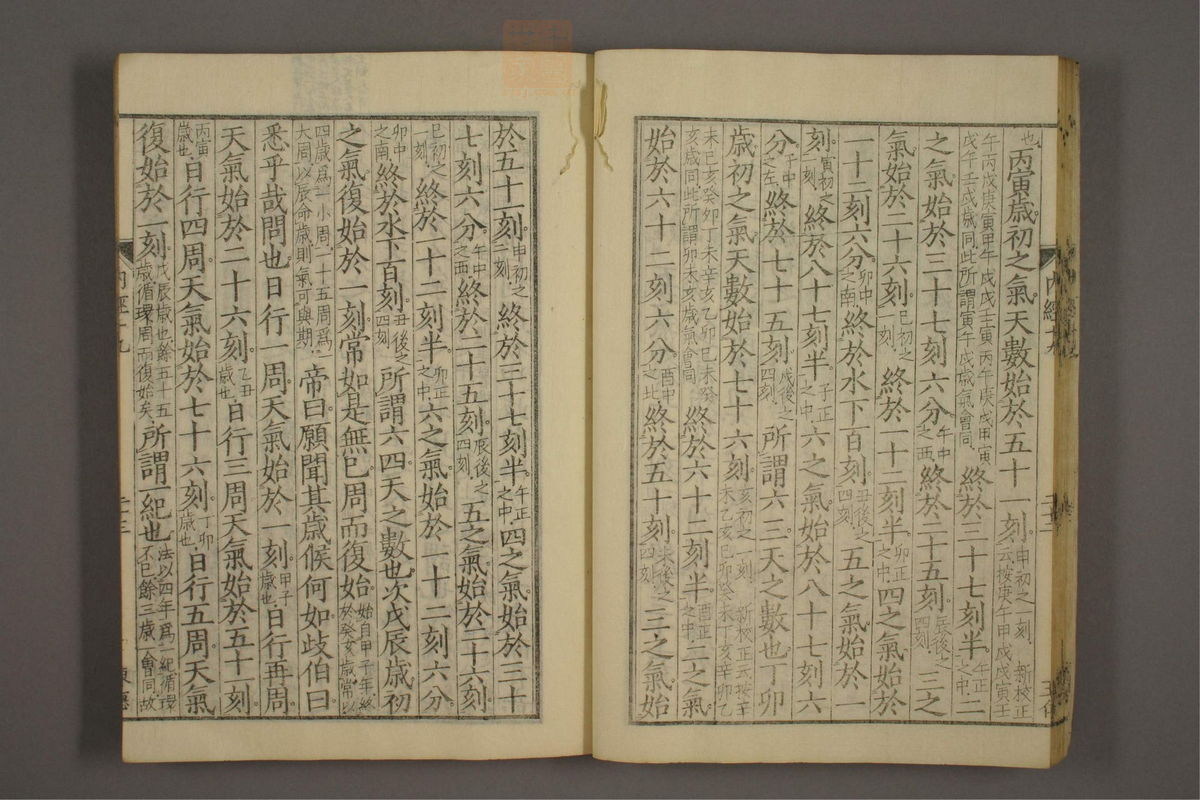 也丙寅歲初之氣天數始於五十一刻申初之一刻新校正云按庚午甲戌戊寅壬
午丙戌庚寅甲午戊戌壬寅丙午庚戌甲寅戊午壬戌歲同此所謂寅午戌歲氣會同終於三十七刻半午正之中二
之氣始於三十七刻六分午中之西終於二十五刻辰後之四刻三之
氣始於二十六刻巳初之一刻終於一十二刻半卯正之中四之氣始於
一十二刻六分卯中之南終於水下百刻丑後之四刻五之氣始於一
刻寅初之一刻終於八十七刻半子正之中六之氣始於八十七刻六
分子中之左終於七十五刻戌後之四刻所謂六三天之數也丁卯
歲初之氣天數始於七十六刻亥初之一刻新校正云按辛未乙亥己卯癸未丁亥辛卯乙
未己亥癸卯丁未辛亥乙卯己未癸亥歲同此所謂卯未亥歲氣會同終於六十二刻半酉正之中二之氣
始於六十二刻六分酉中之北終於五十刻未後之四刻三之氣始
於五十一刻申初之一刻終於三十七刻半午正之中四之氣始於三十
七刻六分午中之西終於二十五刻辰後之四刻五之氣始於二十六刻
巳初之一刻終於一十二刻半卯正之中六之氣始於一十二刻六分
卯中之南終於水下百刻丑後之四刻所謂六四天之數也次戊辰歲初
之氣復始於一刻常如是無已周而復始始自甲子年終於癸亥歲常以
四歲爲一小周一十五周爲一大周以辰命歲則氣可與期帝曰願聞其歲候何如歧伯曰
悉乎哉問也日行一周天氣始於一刻甲子歲也日行再周
天氣始於二十六刻乙丑歲也日行三周天氣始於五十一刻
丙寅歲也日行四周天氣始於七十六刻丁卯歲也日行五周天氣
復始於一刻戊辰歲也餘五十五歲循環周而復始矣所謂一紀也法以四年爲一紀循環不已餘三歲一會同故